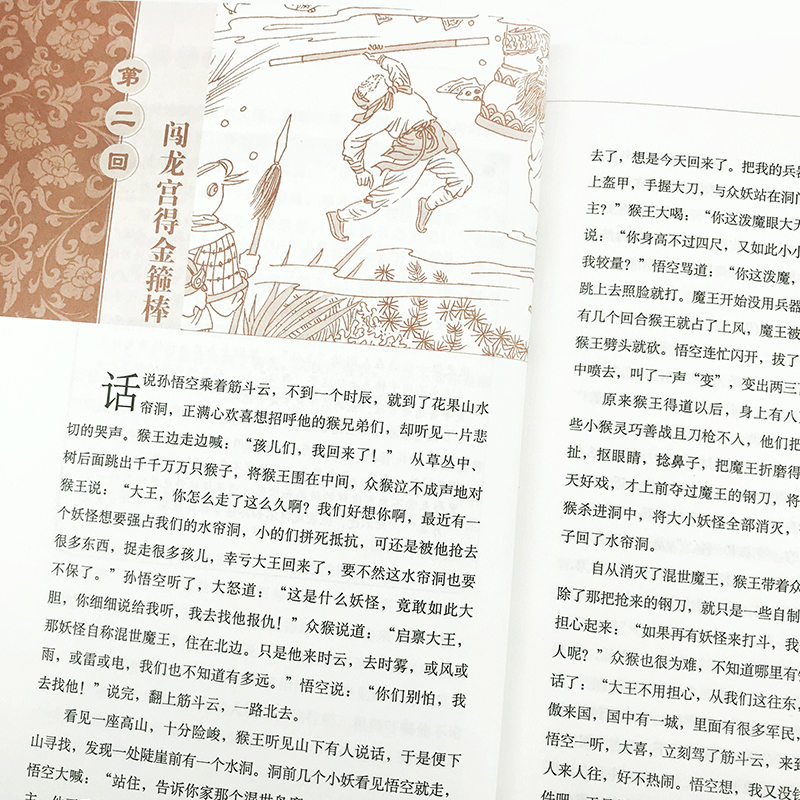 第二回
闯龙宫得金箍棒
话说孙悟空乘着筋斗云，不到一个时辰，就到了花果山水
帘洞，正满心欢喜想招呼他的猴兄弟们，却听见一片悲
切的哭声。猴王边走边喊：“孩儿们，我回来了！” 从草丛中、
树后面跳出千千万万只猴子，将猴王围在中间，众猴泣不成声地对
猴王说：“大王，你怎么走了这么久啊？我们好想你啊，最近有一
个妖怪想要强占我们的水帘洞，小的们拼死抵抗，可还是被他抢去
很多东西，捉走很多孩儿，幸亏大王回来了，要不然这水帘洞也要
不保了。”孙悟空听了，大怒道：“这是什么妖怪，竟敢如此大
胆，你细细说给我听，我去找他报仇！”众猴说道：“启禀大王，
那妖怪自称混世魔王，住在北边。只是他来时云，去时雾，或风或
雨，或雷或电，我们也不知道有多远。”悟空说：“你们别怕，我
去找他！”说完，翻上筋斗云，一路北去。
看见一座高山，十分险峻，猴王听见山下有人说话，于是便下
山寻找，发现一处陡崖前有一个水洞。洞前几个小妖看见悟空就走，
悟空大喊：“站住，告诉你家那个混世鸟魔
去了，想是今天回来了。把我的兵器
上盔甲，手握大刀，与众妖站在洞门
主？”猴王大喝：“你这泼魔眼大无
说：“你身高不过四尺，又如此小小
我较量？”悟空骂道：“你这泼魔，
跳上去照脸就打。魔王开始没用兵器
有几个回合猴王就占了上风，魔王被
猴王劈头就砍。悟空连忙闪开，拔了
中喷去，叫了一声“变”，变出两三
原来猴王得道以后，身上有八
些小猴灵巧善战且刀枪不入，他们把
扯，抠眼睛，捻鼻子，把魔王折磨得
天好戏，才上前夺过魔王的钢刀，将
猴杀进洞中，将大小妖怪全部消灭，
子回了水帘洞。
自从消灭了混世魔王，猴王带着众
除了那把抢来的钢刀，就只是一些自制
担心起来：“如果再有妖怪来打斗，我
人呢？”众猴也很为难，不知道哪里有
话了：“大王不用担心，从我们这往东，
傲来国，国中有一城，里面有很多军民，
悟空一听，大喜，立刻驾了筋斗云，来到
人来人往，好不热闹。悟空想，我又没钱